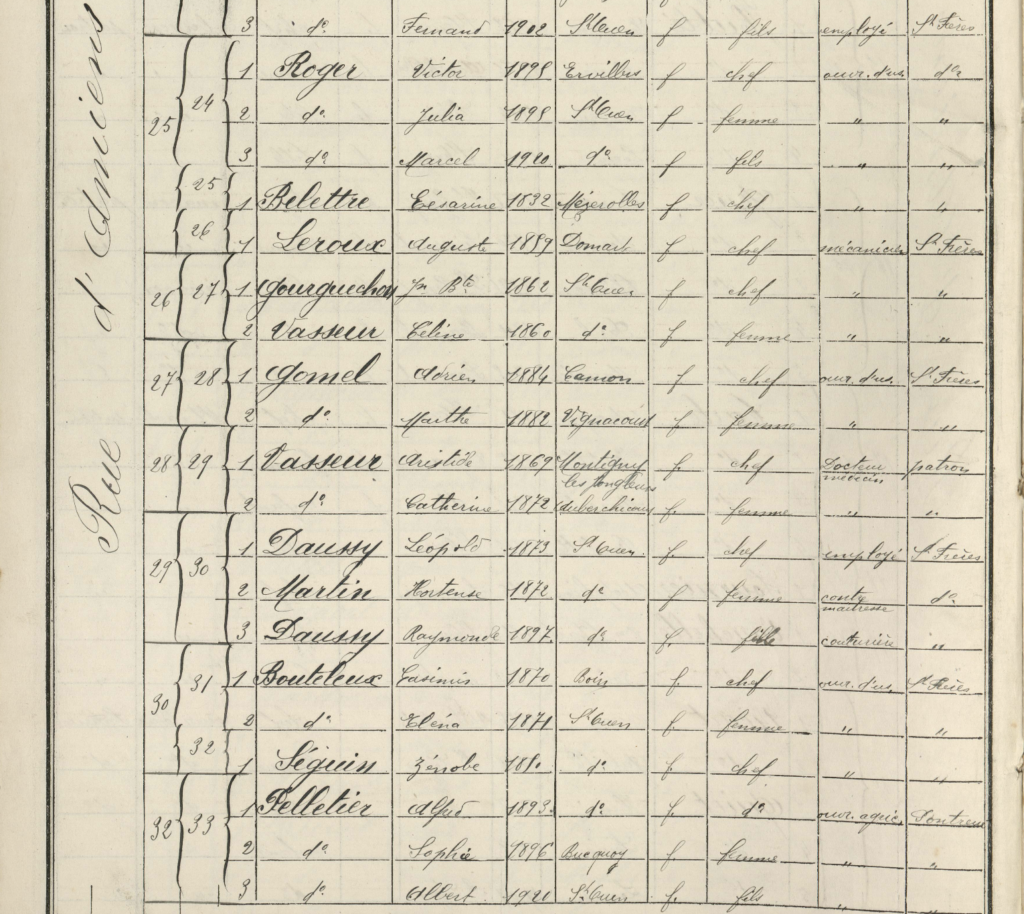 Rue d'Amiens
3 do Fernand 1902 St Ouen f fils employé St Frères
25 24 1 Roger Victor 1895 Ervillers f chef ouv. d'us. do
2 do Julia 1895 St Ouen f femme " "
3 do Marcel 1920 do f fils " "
25 1 Belettre Césarine 1832 Mézerolles f chef " "
26 1 Leroux Auguste 1859 Domart f chef mécanicien St Frères
26 27 1 Gourguechon Jn Bte 1862 St Ouen f chef " "
2 Vasseur Céline 1860 do f femme " "
27 28 1 Gomel Adrien 1884 Camon f chef ouv. d'us. St Frères
2 do Marthe 1882 Vignacourt f femme " "
28 29 1 Vasseur Aristide 1869 Montigny les Jongleurs f. chef Docteur médecin patron
2 do Catherine 1872 Auberchicourt f. femme " "
29 30 1 Daussy Léopold 1873 St Ouen f. chef employé St Frères
2 Martin Hortense 1872 do f femme contre maitresse do
3 Daussy Raymonde 1897. do f. fille couturière "
30 31 1 Bouteleux Casimir 1870 f. chef ouv. d'us. St Frères
2 do Eléna 1871 St Ouen f. femme " "
32 1 Séguin Zénobe do f. chef " "
32 33 1 Pelletier Alfred 1893. do f. do ouv. agric.
2 do Sophie 1896 Bucquoy f. femme " "
3 do Albert 1920 St Ouen f. fils " "